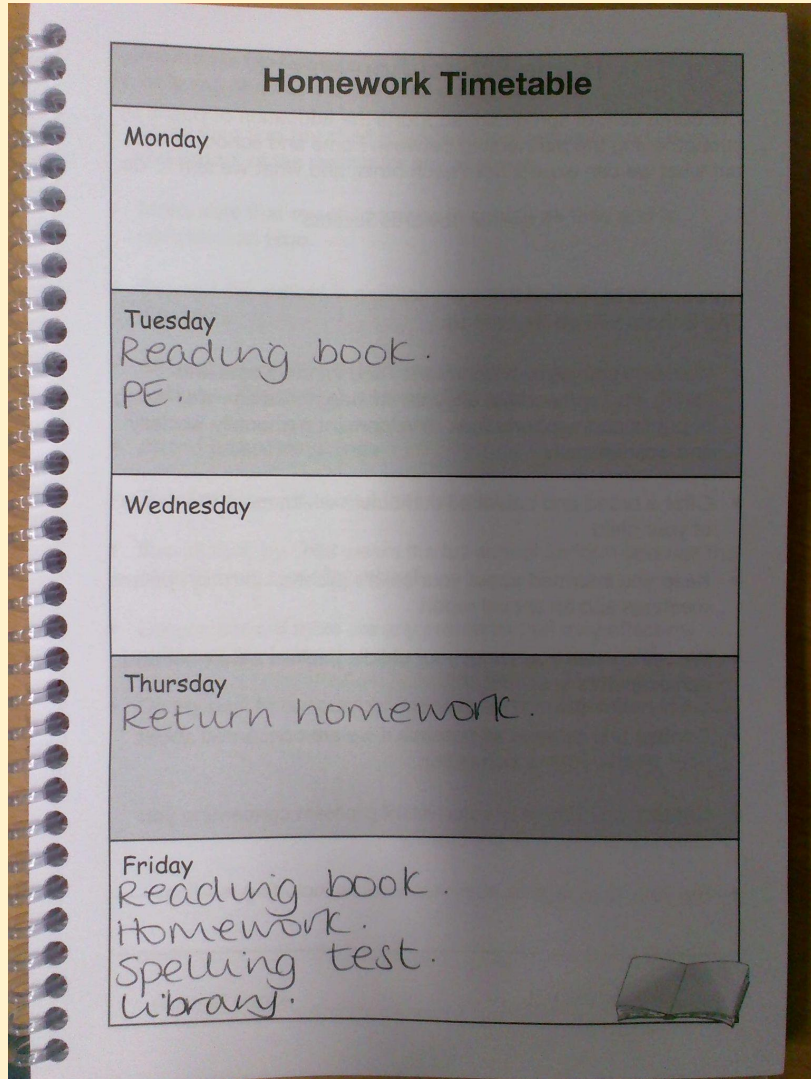 Homework Timetable
Monday
Tuesday
Reading book.
PE.
Wednesday
Thursday
Return homework.
Friday
Reading book.
Homework.
Spelling test.
Library.